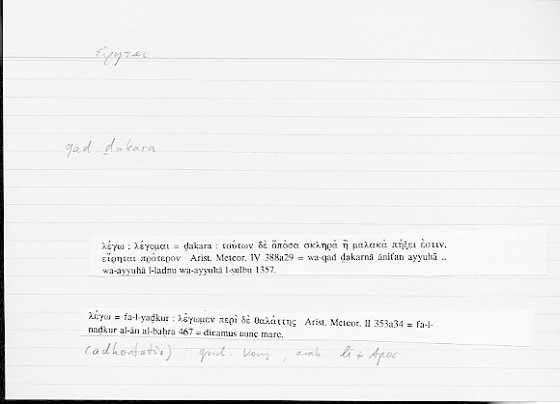 εἴρηται
qad ḏakara
λέγω : λέγομαι = ḏakara : τούτων δὲ ὅποσα σκληρὰ ἢ μαλακὰ πήξει ἐστίν,
εἴρηται πρότερον Arist. Meteor. IV 388a29 = wa-qad ḏakarnā ānifan ayyuhā ..
wa-ayyuhā l-ladnu wa-ayyuhā l-ṣulbu 1357.
λέγω = fa-l-yaḏkur : λέγωμεν περὶ δὲ θαλάττης Arist. Meteor. II 353a34 = fa-l-
naḏkur al-ān al-baḥra 467 = dicamus nunc mare.
(adhortativ) : griech. Konj , arab. li + Apoc